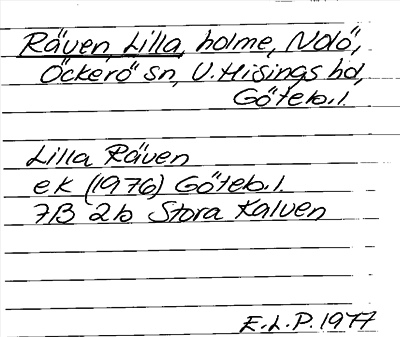 Räven, Lilla, holme, Nolö,
Öckerö sn, V. Hisings hd,
Göteb. l.
Lilla Räven
ek (1976) Göteb. l.
7B 2b Stora Kalven
E.L.P. 1977